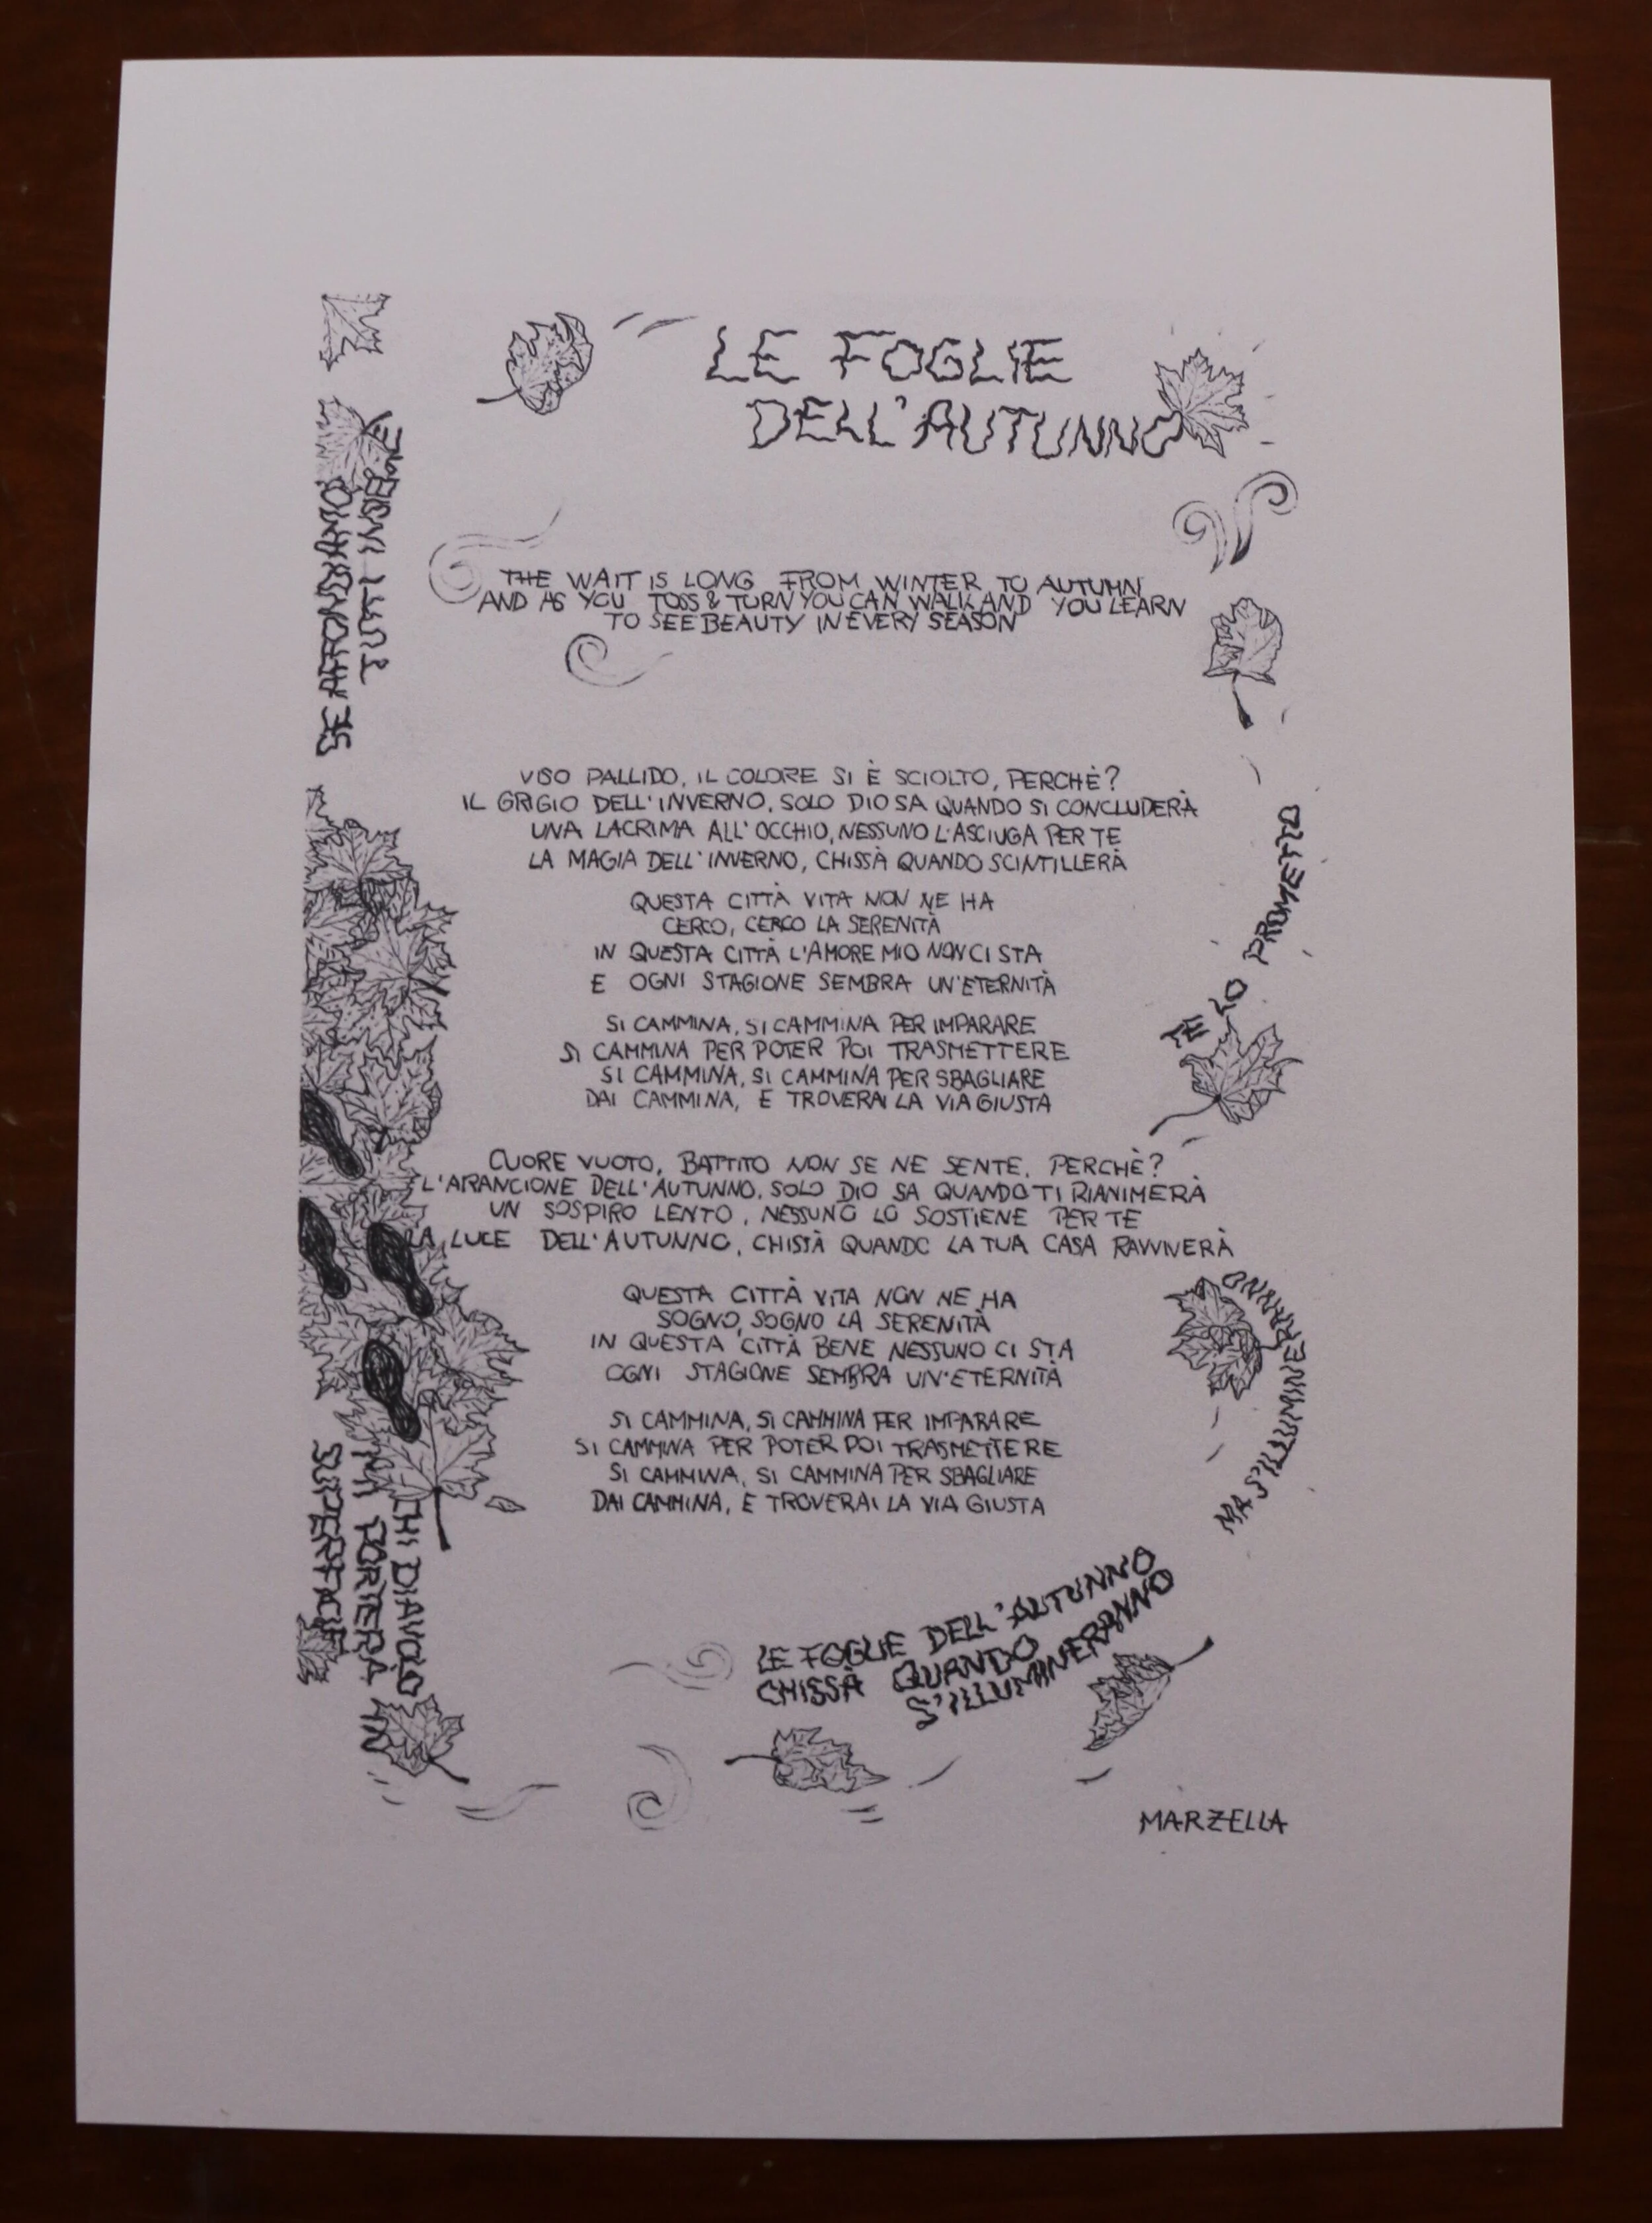 LE FOGLIE
DELL'AUTUNNO
THE WAIT IS LONG FROM WINTER TO AUTUMN
AND AS YOU TOSS & TURN YOU CAN WALK AND YOU LEARN
TO SEE BEAUTY IN EVERY SEASON
VISO PALLIDO, IL COLORE SI È SCIOLTO, PERCHÈ?
IL GRIGIO DELL'INVERNO, SOLO DIO SA QUANDO SI CONCLUDERÀ
UNA LACRIMA ALL'OCCHIO, NESSUNO L'ASCIUGA PER TE
LA MAGIA DELL'INVERNO, CHISSÀ QUANDO SCINTILLERÀ
QUESTA CITTÀ VITA NON NE HA
CERCO, CERCO LA SERENITÀ
IN QUESTA CITTÀ L'AMORE MIO NON CI STA
E OGNI STAGIONE SEMBRA UN'ETERNITÀ
SI CAMMINA, SI CAMMINA PER IMPARARE
SI CAMMINA PER POTER POI TRASMETTERE
SI CAMMINA, SI CAMMINA PER SBAGLIARE
DAI CAMMINA, E TROVERAI LA VIA GIUSTA
CUORE VUOTO, BATTITO NON SE NE SENTE, PERCHÈ?
L'ARANCIONE DELL'AUTUNNO, SOLO DIO SA QUANDO TI RIANIMERÀ
UN SOSPIRO LENTO, NESSUNO LO SOSTIENE PER TE
LA LUCE DELL'AUTUNNO, CHISSÀ QUANDO LA TUA CASA RAVVIVERÀ
QUESTA CITTÀ VITA NON NE HA
SOGNO, SOGNO LA SERENITÀ
IN QUESTA CITTÀ BENE NESSUNO CI STA
OGNI STAGIONE SEMBRA UN'ETERNITÀ
SI CAMMINA, SI CAMMINA PER IMPARARE
SI CAMMINA PER POTER POI TRASMETTERE
SI CAMMINA, SI CAMMINA PER SBAGLIARE
DAI CAMMINA, E TROVERAI LA VIA GIUSTA
LE FOGLIE DELL'AUTUNNO
CHISSÀ QUANDO
S'ILLUMINERANNO
MA S'ILLUMINERANNO
TE LO PROMETTO
SE AFFONDIAMO
TUTTI
CHI DIAVOLO
MI PORTERÀ IN
SUPERFICIE
MARZELLA